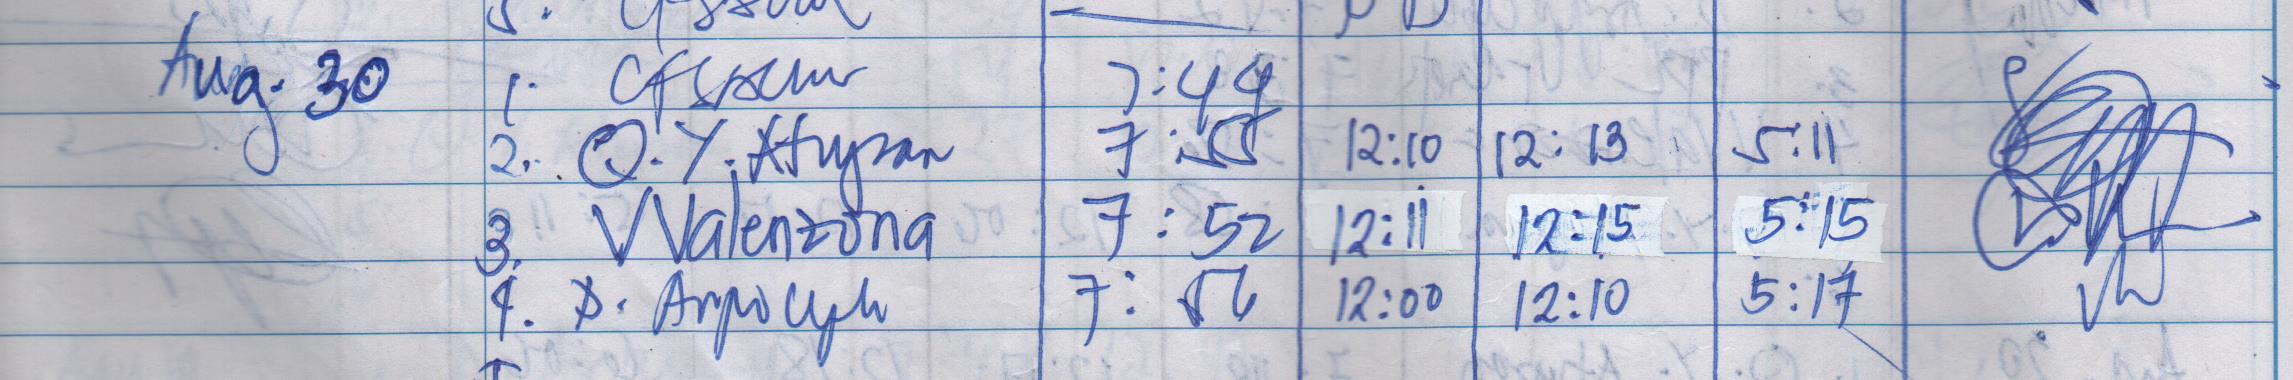 Aug. 30 1. 7:44
2. O. Y. 7:55 12:10 12:13 5:11
3. V Valenzona 7:52 12:11 12:15 5:15
4. D. 7:56 12:00 12:10 5:17